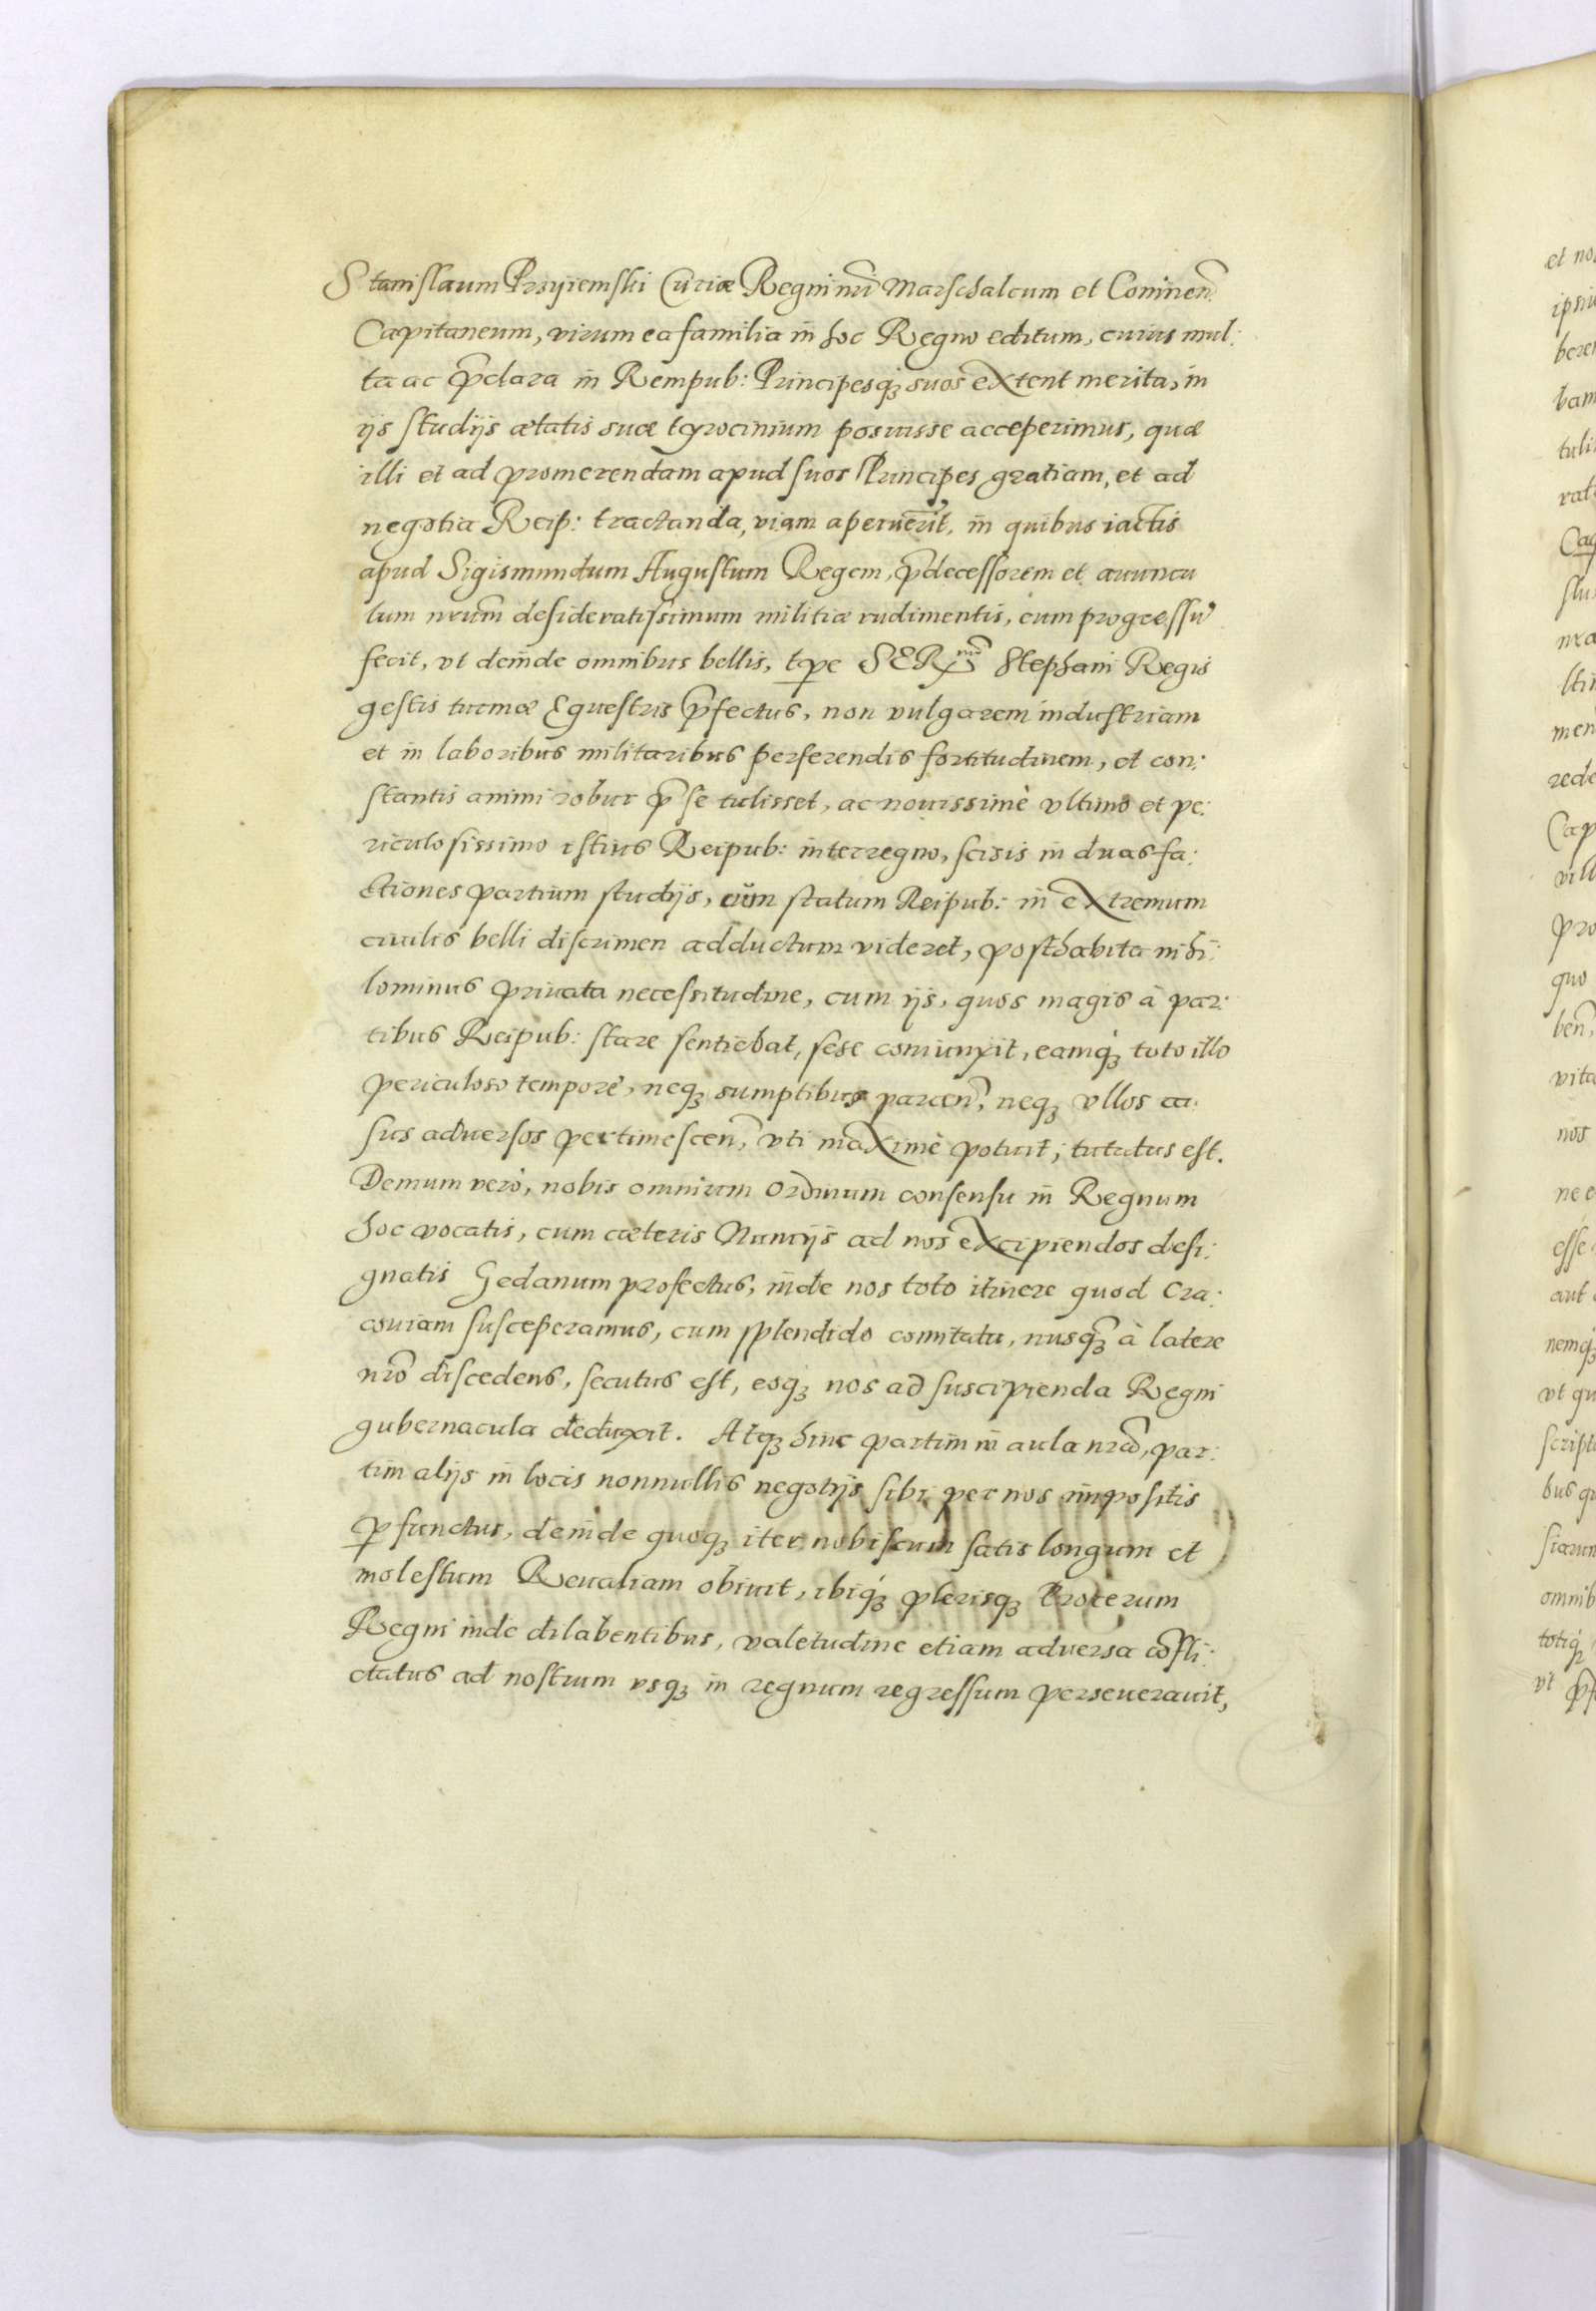 Stanislaum Prziiemski Curiæ Regni nr̃i Marschalcum et Coninen̄.
Capitaneum, virum ea familia in hoc Regno editum, cuius mul:
ta ac p̄clara in Rempub: Principesq₃ suos extent merita, in
ijs studijs ætatis suæ tyrocinium posuisse acceperimus, quæ
illi et ad promerendam apud suos Principes gratiam, et ad
negotia Reip: tractanda, viam aperuerit, in quibus iactis
apud Sigismundum Augustum Regem, p̄decessorem et auuncu
lum nrum̄ desideratissimum militiæ rudimentis, eum progressū
fecit, vt deinde omnibus bellis, tp̱e SERmi Stephani Regis
gestis turmæ Equestris p̄fectus, non vulgarem industriam
et in laboribus militaribus perferendis fortitudinem, et con:
stantis animi robur p̄ se tulisset, ac nouissimè vltimo et pe:
riculosissimo istius Reipub: interregno, scisis in duas fa:
ctiones partium studijs, cùm statum Reipub: in extremum
ciuilis belli discrimen adductum videret, posthabita nihi:
lominus priuata necessitudine, cum ijs, quos magis à par:
tibus Reipub: stare sentiebat, sese coniunxit, eamq́₃ toto illo
periculoso tempore, neq₃ sumptibus parcen̄, neq₃ vllos ca:
sus aduersos pertimescen̄, vti maximè potuit, tutatus est.
Demum verò, nobis omnium ordinum consensu in Regnum
hoc vocatis, cum cæteris Nuncijs ad nos excipiendos desi:
gnatis Gedanum profectus, inde nos toto itinere quod Cra:
couiam susceperamus, cum splendido comitatu, nusq̄₃ à latere
nr̃o discedens, secutus est, eoq₃ nos ad suscipienda Regni
gubernacula deduxit. Atq₃ hinc partim in aula nrã, par:
tim alijs in locis nonnullis negotijs sibi per nos impositis
p̱functus, deinde quoq₃ iter nobiscum satis longum et
molestum Reualiam obiuit, ibiq́₃ plerisq₃ Procerum
Regni inde dilabentibus, valetudine etiam aduersa cōfli:
ctatus ad nostrum vsq₃ in regnum regressum perseuerauit,